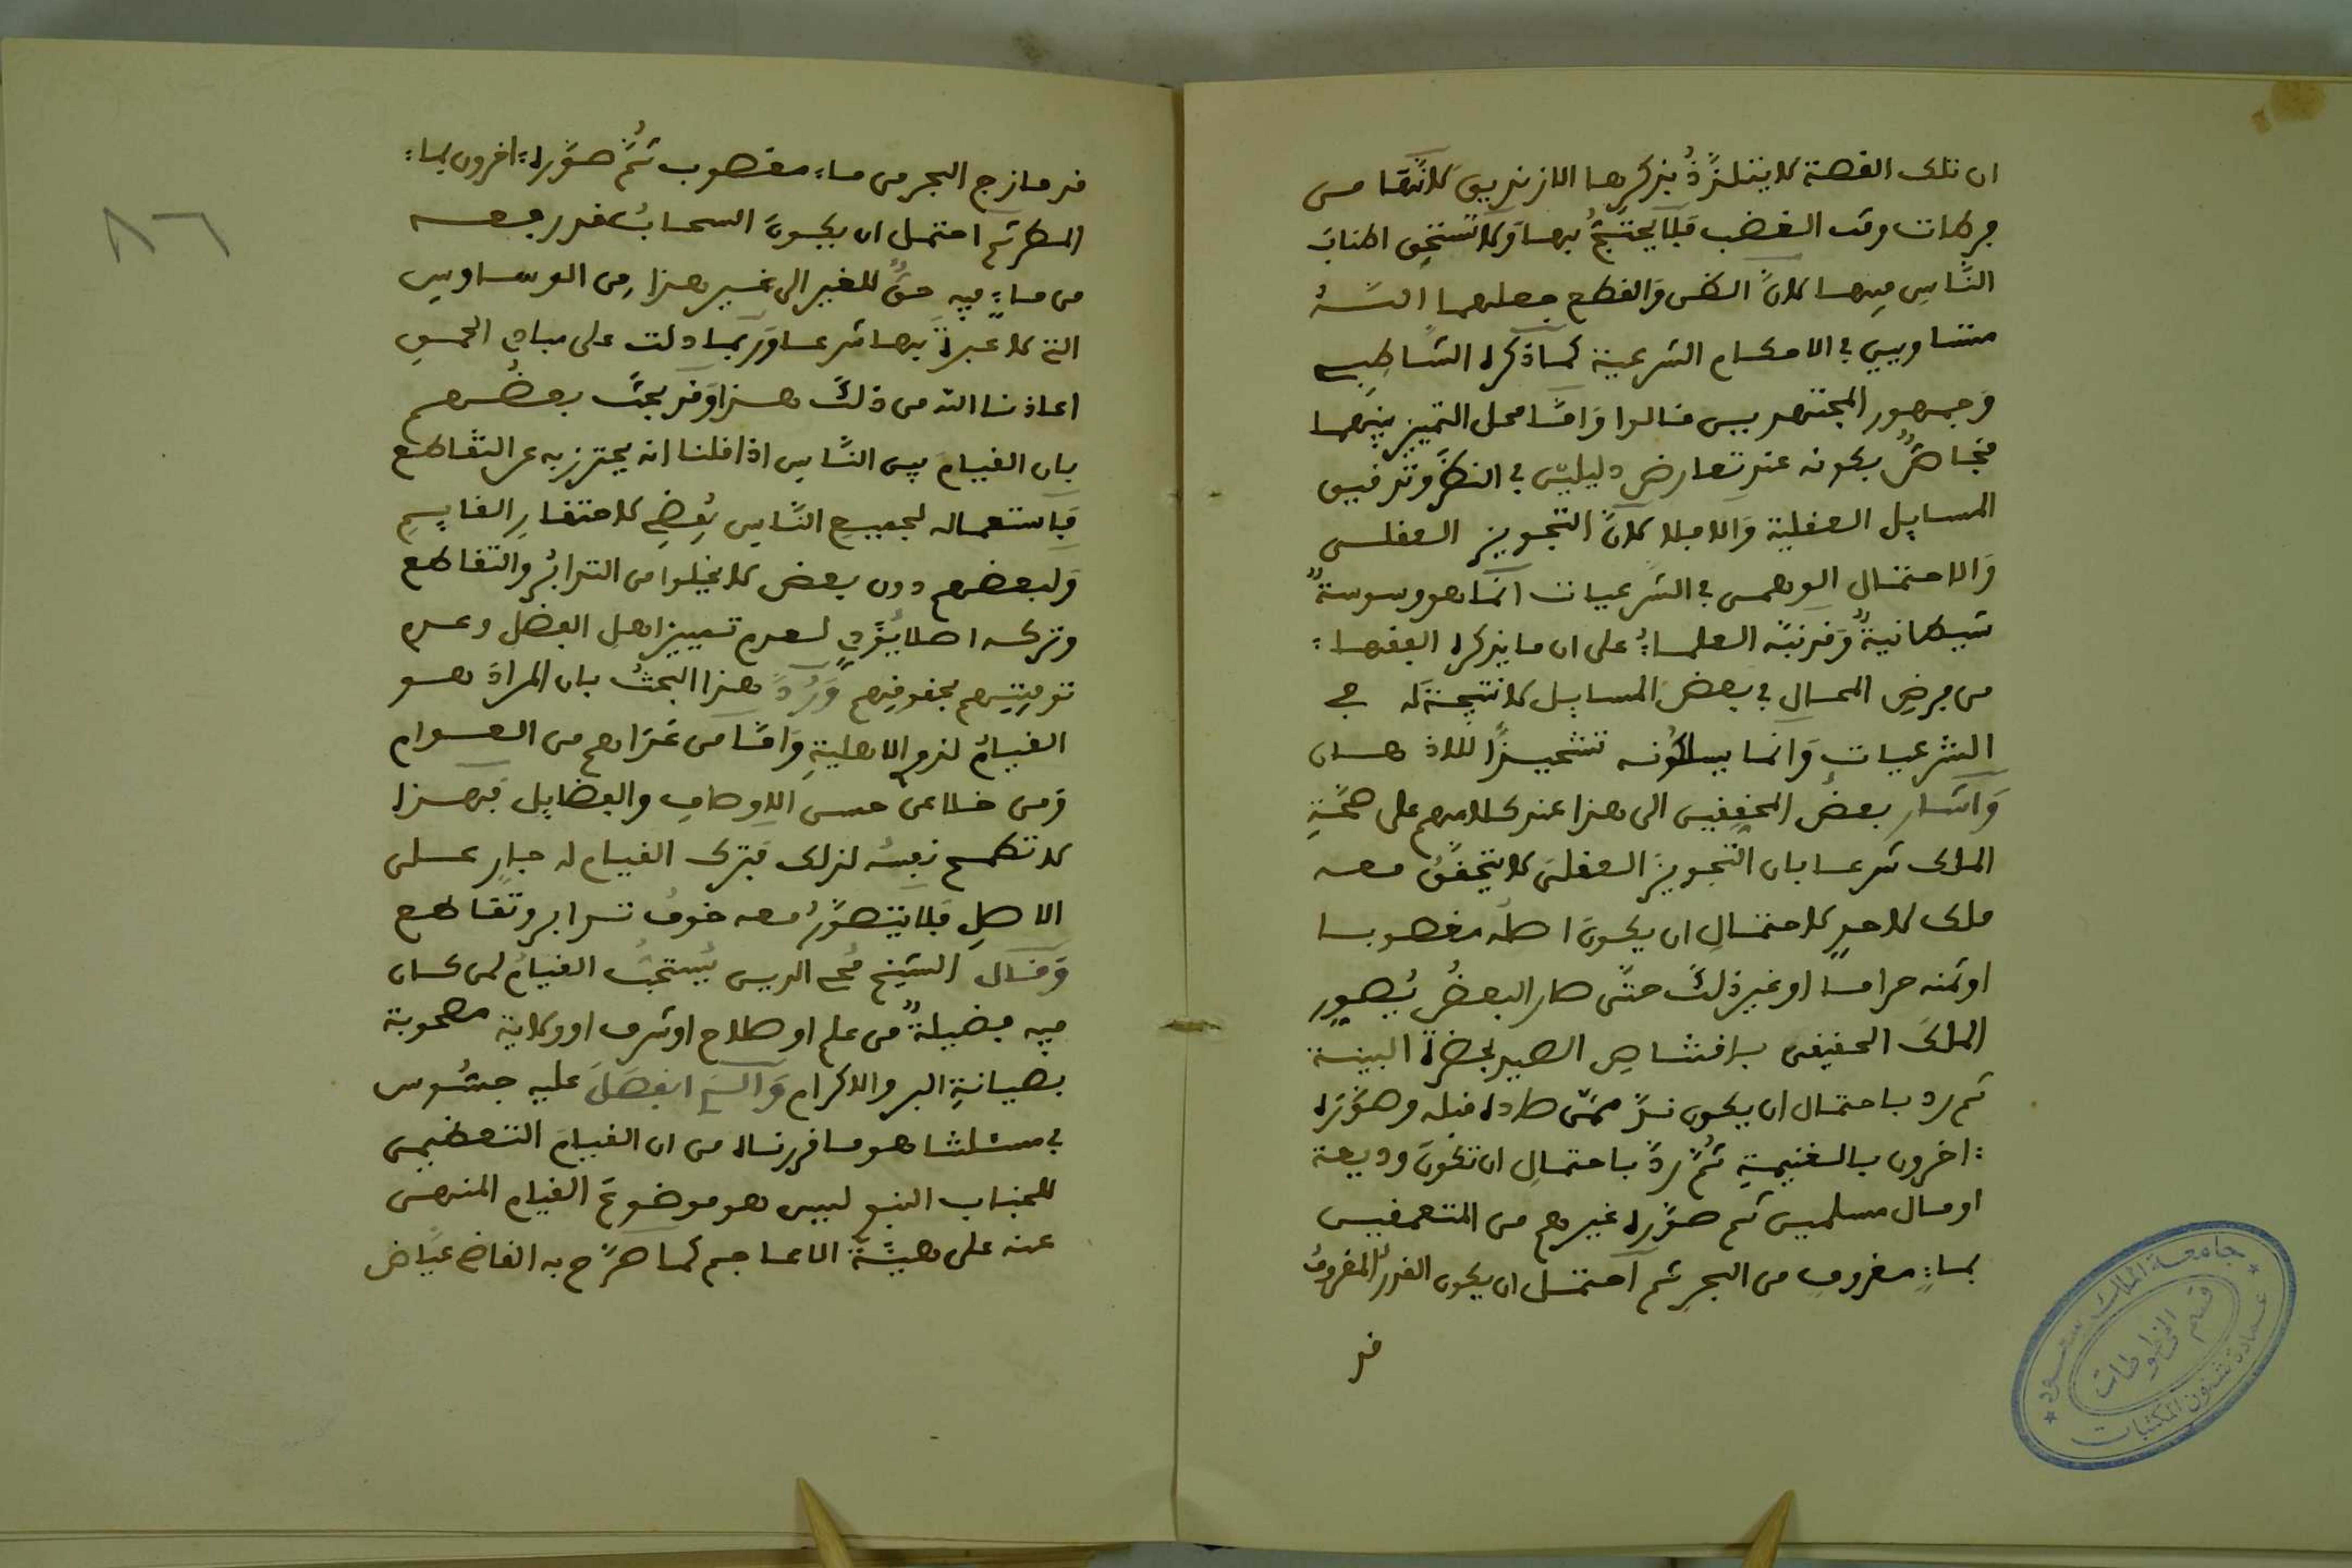 ان تلك القصة لا يتلذذ بذكرها الا زنديق لانها من
فرطات وقت الغضب فلا يحتج بها ولا تستخف اكناف
النّاس فيها لان الظن والقطع جعلهما الله
متساويين في الاحكام الشرعية كما ذكره الشاطبي
وجمهور المجتهدين قالوا وامّا محل التمييز بينهما
فخاصٌ بكونه عند تعارض دليلين في النظر وتدقيق
المسايل العقلية والا فلا لانّ التجويز العقلي
والاحتمال الوهمي في الشرعيات انما هو وسوسةٌ
شيطانيةٌ وقد نبّه العلماءُ على ان ما يذكره الفقهاء
من فرض المحال في بعض المسايل لا نتيجة له في
الشرعيات وانما يسلكونه تشحيذًا للاذهان
واشار بعض المحققين الى هذا عند كلامهم على صحّة
الملك شرعا بان التجويز العقلي لا يتحقّق معه
ملك لاحدٍ لاحتمال ان يكون اصله مغصوبا
او ثمنه حرامًا او غير ذلك حتّى صار البعض يُصور
الملك الحقيقي باقتناص الصيد بحضرة البينة
ثم ردّ باحتمال ان يكون ندّ ممّن صاده قبله وصوّره
اخرون بالغنيمة ثمّ ردّ باحتمال ان تكون وديعة
او مال مسلمين ثم صوّره غيرهم من المتعمقين
بماءٍ مغروف من البحر ثم احتمل ان يكون القدر المغروف
قد
٨٦
قد مازج البحر من ماء مغصوب ثُمّ صوّره اخرون بماء
المطر ثم احتمل ان يكون السحاب قد رفعه
من ماءٍ فيه حقٌّ للغير الى غير هذا من الوساوس
التي لا عبرة بها شرعا وربما دلت على مبادي الحمق
اعاذنا الله من ذلك هذا وقد بحث بعضهم
بان القيام بين النّاس اذا قلنا انه يحترز به عن التقاطع
فاستعماله لجميع النّاس يُفضي لاحتقار القايم
ولبعضهم دون بعض لا يخلوا من التدابر والتقاطع
وتركه اصلا يُؤدّي لعدم تمييز اهل الفضل وعدم
توفيتهم بحقوقهم ورُدّ هذا البحث بان المراد هو
القيام لذوي الاهلية وامّا من عداهم من العوام
ومن خلا عن حسن الاوصاف والفضايل فهذا
لا تطمح نفسه لذلك فترك القيام له جارٍ على
الاصل فلا يتصوّر معه خوف تدابر وتقاطع
وقال الشيخ محي الدين يُستحبّ القيام لمن كان
فيه فضيلةٌ من علم او صلاح او شرف او ولاية مصحوبة
بصيانة البر والاكرام انفصل عليه جسّوس
في مسئلتنا هو ما قررناه من ان القيام التعظيمي
للجناب النبوي ليس هو موضوع القيام المنهي
عنه على هيئة الاعاجم كما صرّح به القاضي عياض
جامعة الملك سعود
عمادة شئون المكتبات
قسم المخطوطات